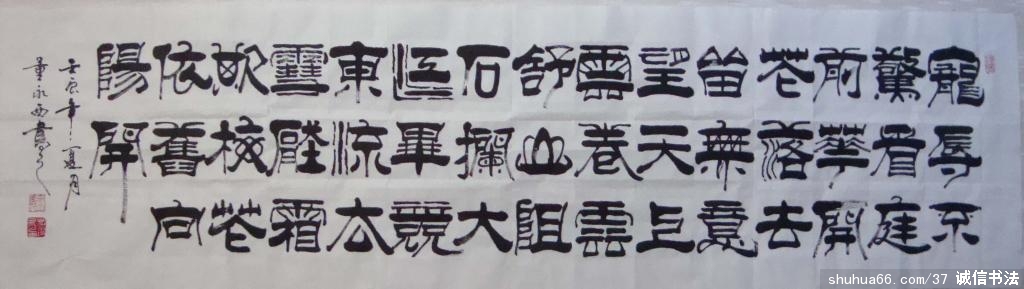 寵辱不
驚看庭
前華開
花落去
留無意
望天上
雲卷雲
舒山阻
石攔大
江畢競
東流去
雪壓霜
欺梅花
依舊向
陽開
壬辰年夏月
董永西書
shuhua66.com/37 诚信书法